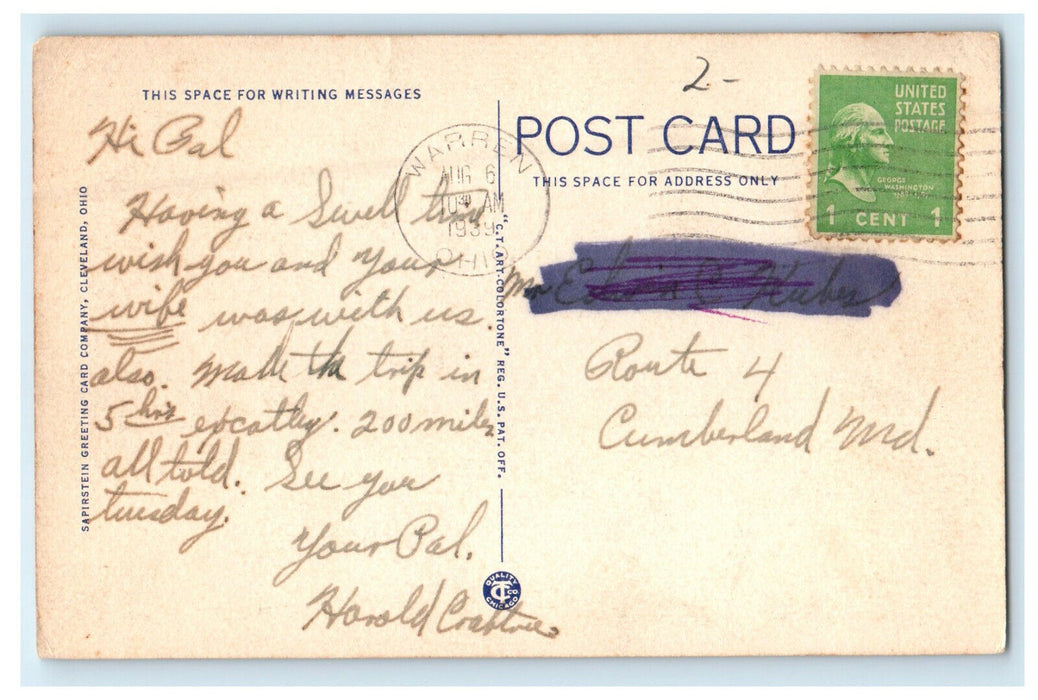 THIS SPACE FOR WRITING MESSAGES
Hi Pal
Having a Swell time
wish you and your
wife was with us.
also. Made the trip in
5 hrs excatley. 200 miles
all told. See you
tuesday.
Your Pal.
Harold Crabtree
SAPIRSTEIN GREETING CARD COMPANY, CLEVELAND, OHIO
"C.T. ART-COLORTONE" REG. U.S. PAT. OFF.
QUALITY
CT CO
CHICAGO
WARREN
AUG 6
10 30 AM
1939
OHIO
2-
POST CARD
THIS SPACE FOR ADDRESS ONLY
UNITED
STATES
POSTAGE
GEORGE
WASHINGTON
1 CENT 1
Mr
Route 4
Cumberland Md.